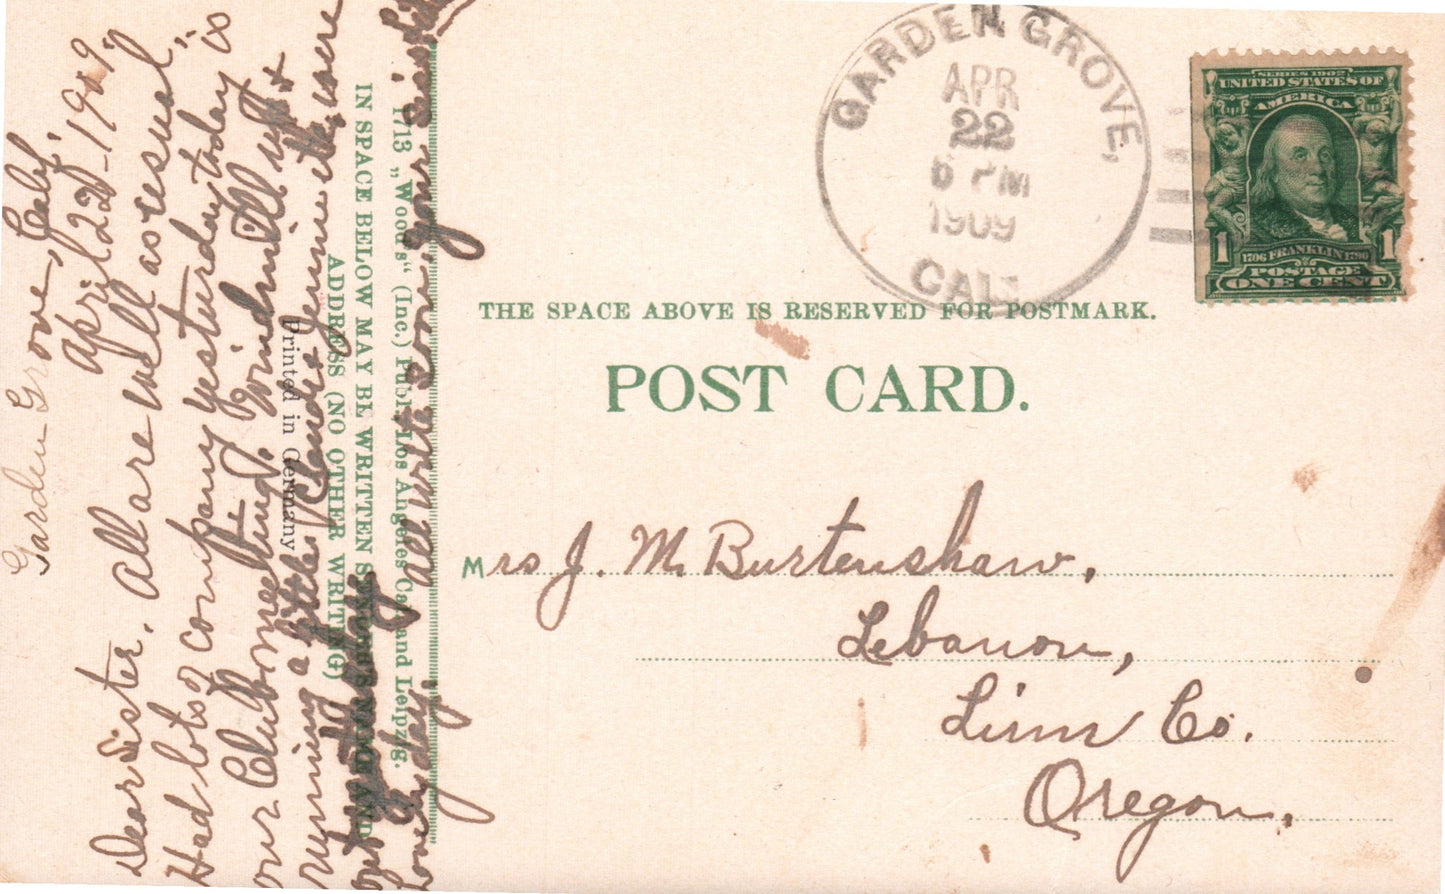 Garden Grove, Calif,
April 22d - 1909,
Dear Sister. All are well as usual,
Had lots of company yesturday today is
our Club meeting. Windmill up &
running a little, Claude & Jennie were
out
lovely day. all write soon your sister
1713 „Woods“ (Inc.) Publ. Los Angeles Cal. and Leipzig.
IN SPACE BELOW MAY BE WRITTEN
ADDRESS (NO OTHER WRITING)
Printed in Germany
GARDEN GROVE,
APR
22
6 PM
1909
CAL.
SERIES 1902
UNITED STATES OF
AMERICA
1706 FRANKLIN 1790
1 1
POSTAGE
ONE CENT
THE SPACE ABOVE IS RESERVED FOR POSTMARK.
POST CARD.
Mrs J. M. Burtenshaw,
Lebanon,
Linn Co.
Oregon.